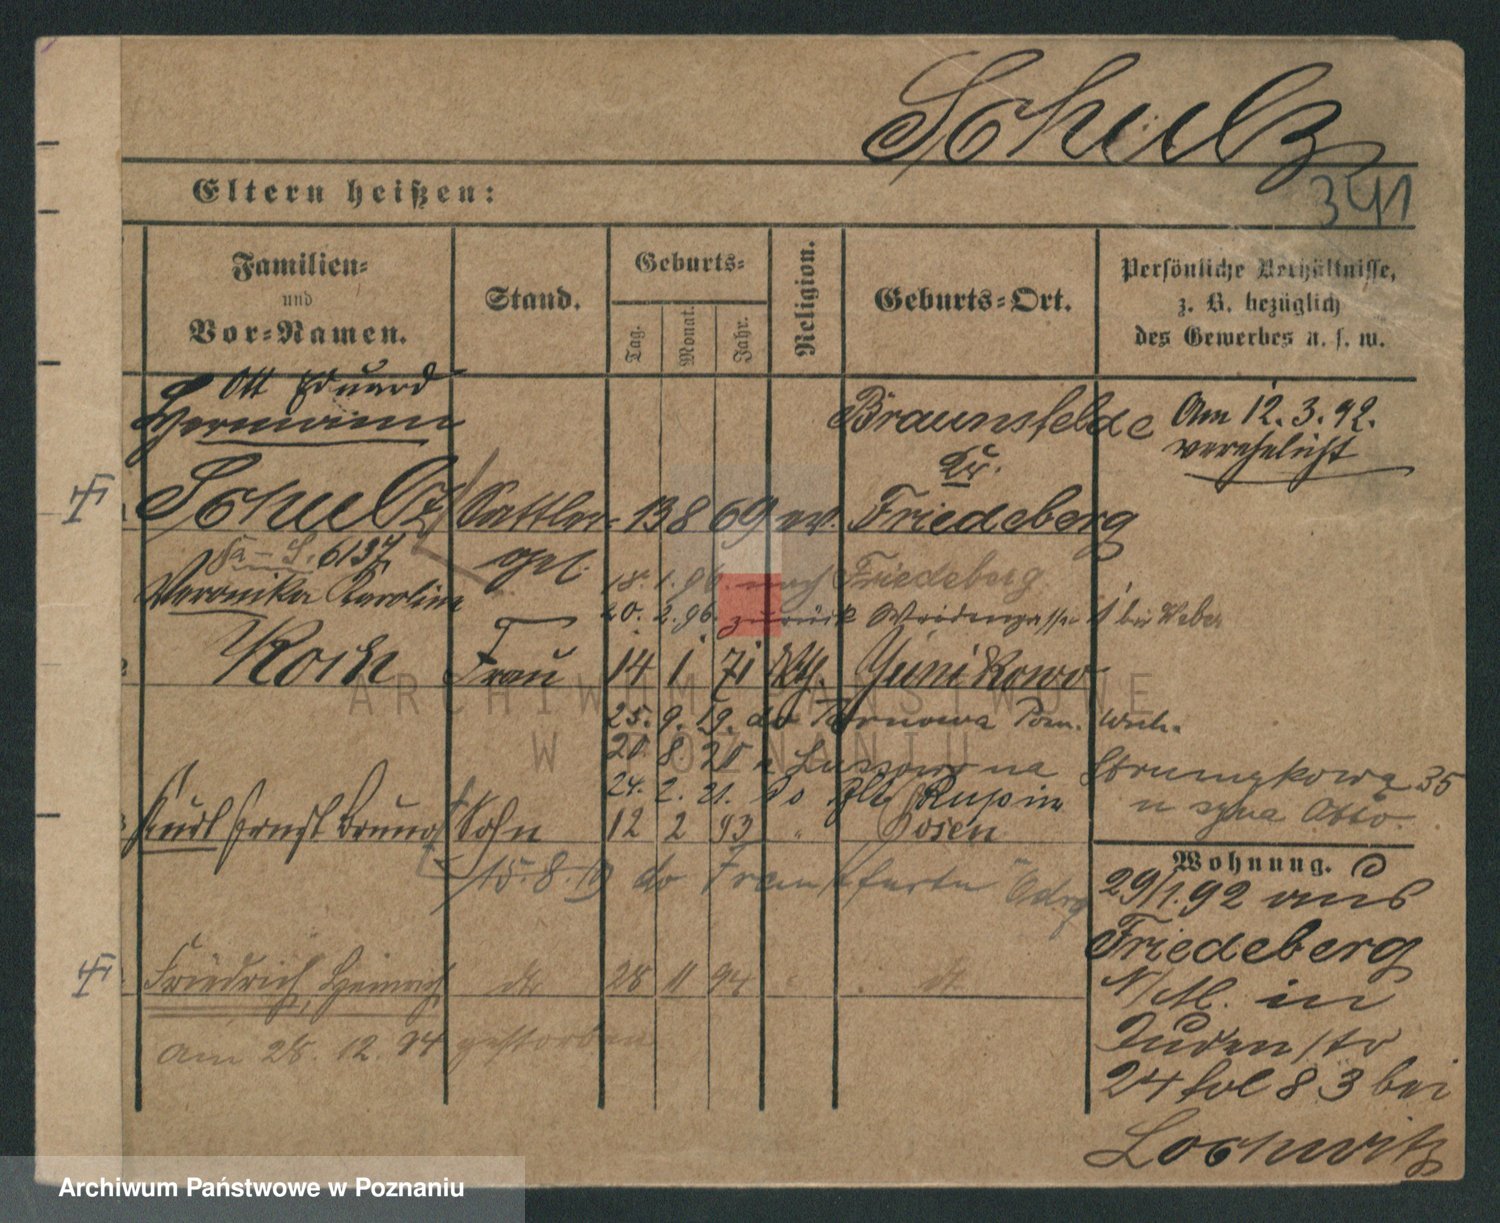 Schulz
341
Eltern heißen:
Familien-
und
Vor-Namen.
Stand.
Geburts-
Tag.
Monat.
Jahr.
Religion.
Geburts-Ort.
Persönliche Verhältnisse,
z. B. bezüglich
des Gewerbes u. s. w.
Otto Eduard
Hermann
Schulz Sattler 13 8 69 ev.
Braunsfelde
Kr.
Friedeberg
Am 12.3.92.
verehelicht
6137
Veronika Karoline
Koch
gel.
18. 1. 96. nach Friedeberg
20. 2. 96. zurück 1 bei Weber
Frau 14 1 71 kth. Junikowo
25. 9. 19. do Tarnowa Pozn. Wsch.
20 8 20 z Lussowo na 35
24. 2. 21. do
u syna Otto.
Kurl Ernst Bruno Sohn 12 2 93 " Posen
15. 8. 19 do Frankfurtu Odrą
Friedrich, Heinrich do 28 11 94 do
am 28. 12. 94 gestorben
Wohnung.
29/1.92 aus
Friedeberg
N/M. in
Judenstr
24 fol 83 bei
Lochwitz
ARCHIWUM PAŃSTWOWE
W POZNANIU
Archiwum Państwowe w Poznaniu